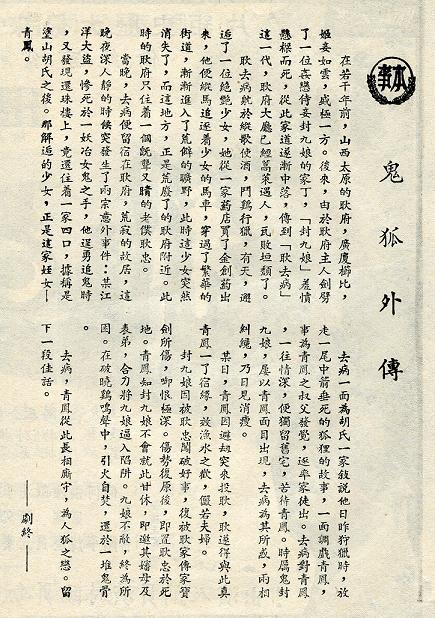 本事
鬼狐外傳
在若干年前，山西太原的耿府，廣廈櫛比，
姬妾如雲，盛極一方。後來，由於耿府主人劍劈
了一位戀侍妾封九娘的家丁，「封九娘」羞憤
懸樑而死，從此家道逐漸中落，傳到「耿去病」
這一代，耿府大廳已經蒿萊過人，瓦敗垣頹了。
耿去病耽於縱歌使酒，鬥鷄行獵，有天，邂
逅了一位絕艷少女，她從一家葯店買了金創葯出
來，他便縱馬追逐着少女的馬車，穿過了繁華的
街道，漸漸進入了荒僻的曠野，此時這少女突然
消失了，而這地方，正是荒廢了的耿府附近。此
時的耿府只住着一個既聾又瞶的老僕耿忠。
當晚，去病便留宿在耿府，荒寂的故居，這
晚夜深人靜的時候突發生了兩宗意外事件：某江
洋大盜，慘死於一妖冶女鬼之手，他逞勇追鬼時
，又發現還珠樓上，竟還住着一家四口，據稱是
塗山胡氏之後。那解逅的少女，正是這家姪女—
青鳳。
去病一面為胡氏一家敍說他日昨狩獵時，放
走一尾中箭垂死的狐狸的故事，一面調戲青鳳，
事為青鳳之叔父發覺，遂率家徒出。去病對青鳳
，一往情深，便獨留舊宅，苦待青鳳。時屬鬼封
九娘，屢以青鳳面目出現，去病為其所惑，兩相
糾纏，乃日見消瘦。
某日，青鳳因避劫突來投耿，耿遂得與此真
青鳳一了宿緣，故漁水之歡，儼若夫婦。
封九娘因被耿忠闖破好事，復被耿家傳家寶
劍所傷，啣恨極深。傷勢復原後，即置耿忠於死
地。青鳳知封九娘不會就此甘休，即邀其嬸母及
表弟，合力將九娘逼入陷阱。九娘不敵，終為所
困。在破曉鷄鳴聲中，引火自焚，還於一堆鬼骨
。
去病，青鳳從此長相廝守，為人狐之戀。留
下一段佳話。
——劇終——